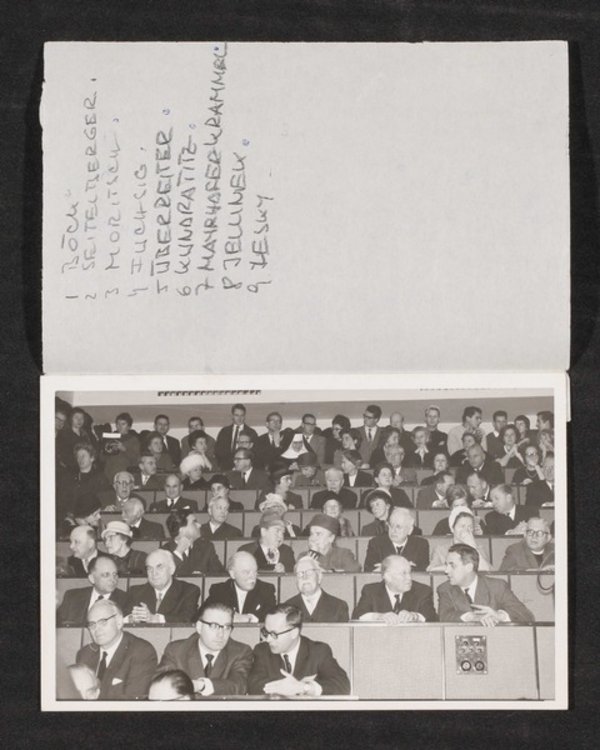 1 BÖCK
2 SEITELBERGER.
3 MORITSCH.
4
5 ÜBERREITER.
6 KUNDRATITZ.
7 MAYRHOFER KRAMMEL.
8 JELLINEK.
9 ZESKY